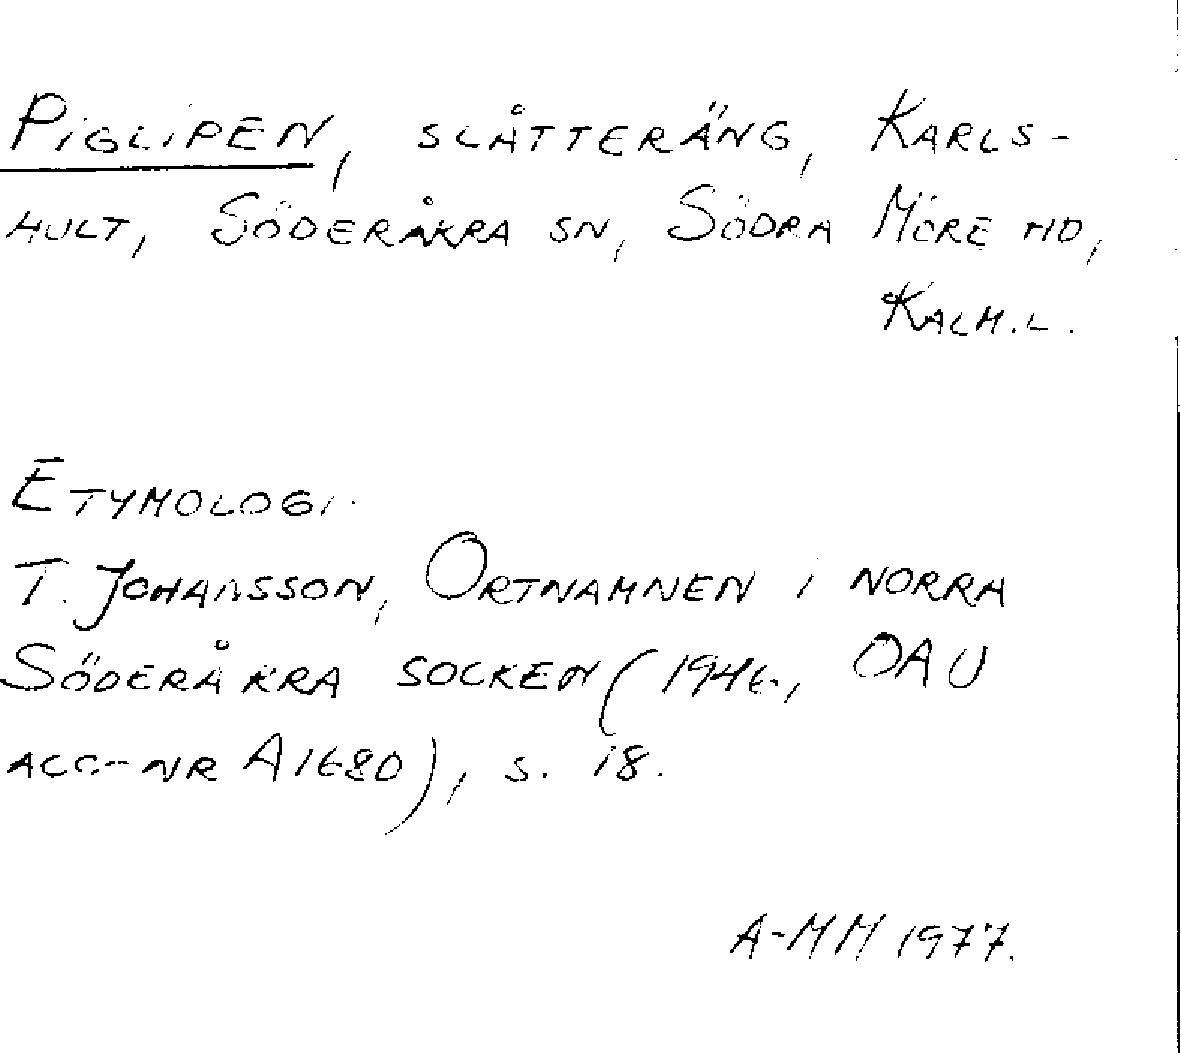 PIGLIPEN, SLÅTTERÄNG, KARLS-
HULT, SÖDERÅKRA SN, SÖDRA MÖRE HD,
KALM.L.
ETYMOLOGI.
T. JOHANSSON, ORTNAMNEN I NORRA
SÖDERÅKRA SOCKEN (1946, OAU
ACC-NR A1680), S. 18.
A-MM 1977.